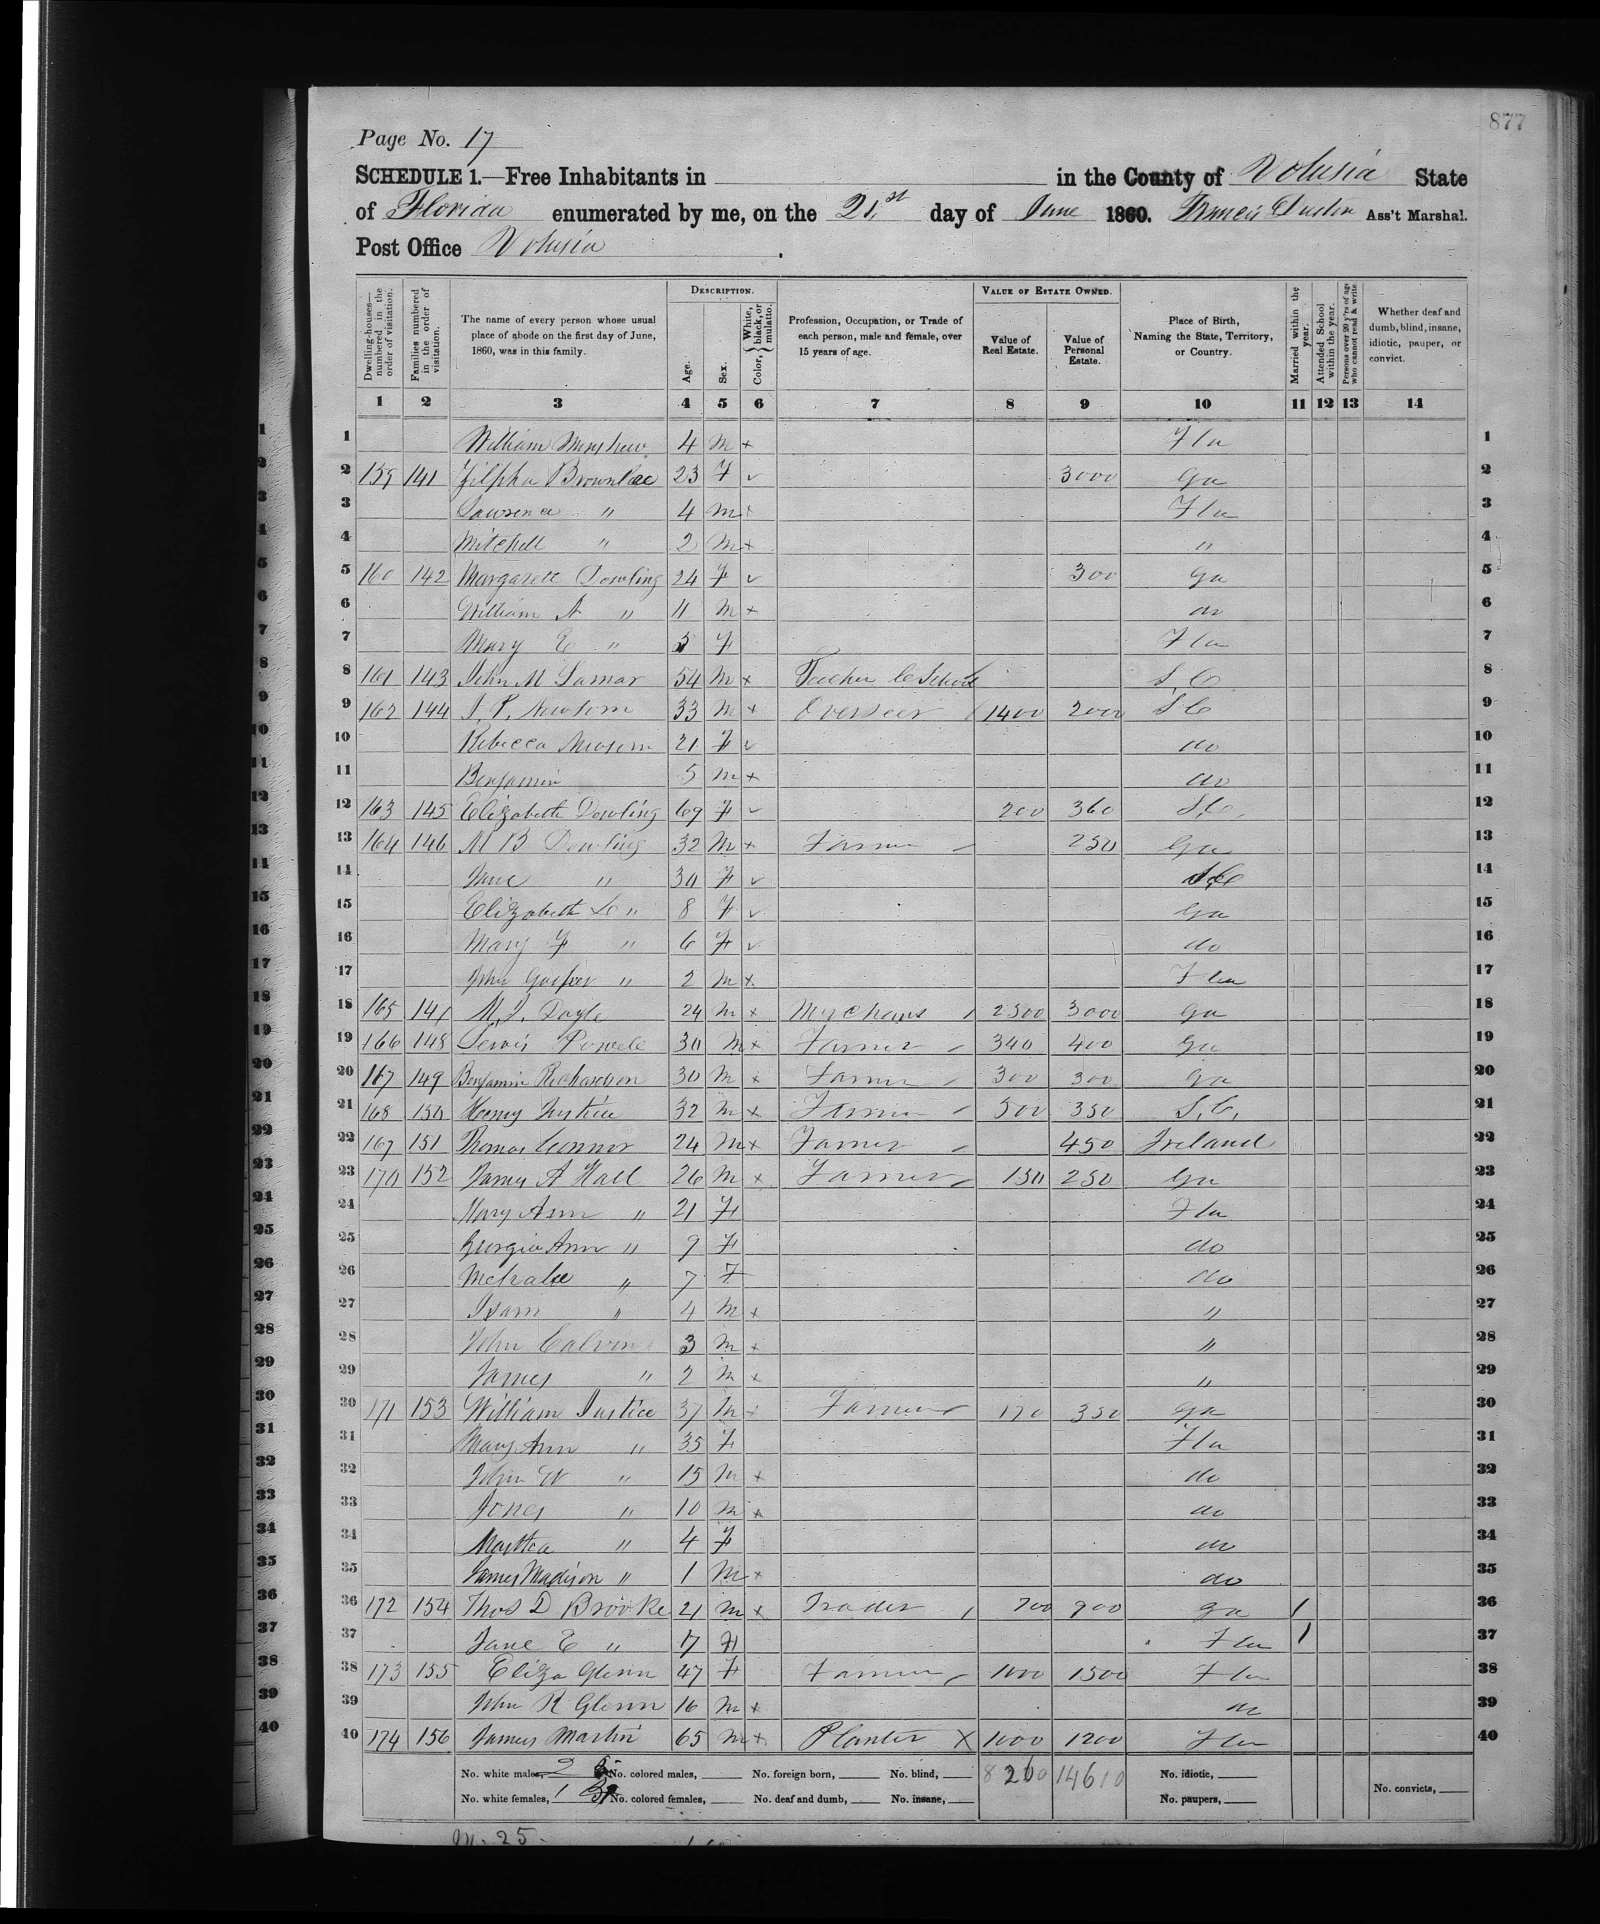 877
Page No. 17
SCHEDULE 1.—Free Inhabitants in in the County of Volusia State
of Florida enumerated by me, on the 21st day of June 1860. Francis Ass't Marshal.
Post Office Volusia.
DESCRIPTION. VALUE OF ESTATE OWNED.
Dwelling-houses—numbered in the order of visitation.
Families numbered in the order of visitation.
The name of every person whose usual place of abode on the first day of June, 1860, was in this family.
Age.
Sex.
Color, { White, black, or mulatto.
Profession, Occupation, or Trade of each person, male and female, over 15 years of age.
Value of Real Estate.
Value of Personal Estate.
Place of Birth, Naming the State, Territory, or Country.
Married within the year.
Attended School within the year.
Persons over 20 y'rs of age who cannot read & write.
Whether deaf and dumb, blind, insane, idiotic, pauper, or convict.
1 2 3 4 5 6 7 8 9 10 11 12 13 14
1 William 4 M x Fla 1
2 159 141 Zilpha Brownlee 23 F 3000 Ga 2
3 " 4 M x Fla 3
4 Mitchell " 2 M x " 4
5 160 142 Margarett Dowling 24 F 300 Ga 5
6 William A " 11 M x do 6
7 Mary E " 5 F Fla 7
8 161 143 John M Lamar 54 M x Teacher C School S C 8
9 162 144 33 M x Overseer 1400 2000 S C 9
10 Rebecca 21 F do 10
11 Benjamin 5 M x do 11
12 163 145 Elizabeth Dowling 69 F 200 360 S.C. 12
13 164 146 M B Dowling 32 M x Farmer 250 Ga 13
14 Jane " 30 F 14
15 Elizabeth " 8 F Ga 15
16 Mary F " 6 F do 16
17 John " 2 M x Fla 17
18 165 147 Doyle 24 M x 2500 3000 Ga 18
19 166 148 Lewis Powell 30 M x Farmer 300 400 Ga 19
20 167 149 Benjamin Richardson 30 M x Farmer 300 300 Ga 20
21 168 150 Henry Justice 32 M x Farmer 500 350 S.C. 21
22 169 151 Thomas Connor 24 M x Farmer 450 Ireland 22
23 170 152 James A Hall 26 M x Farmer 150 250 Ga 23
24 Mary Ann " 21 F Fla 24
25 Georgia Ann " 9 F do 25
26 " 7 F do 26
27 Isam " 4 M x " 27
28 John Calvin 3 M x " 28
29 James " 2 M x " 29
30 171 153 William Justice 37 M x Farmer 170 350 Ga 30
31 Mary Ann " 35 F Fla 31
32 John W " 15 M x do 32
33 Jones " 10 M x do 33
34 Martha " 4 F do 34
35 James Madison " 1 M x do 35
36 172 154 Thos D Brooke 21 M x Trader 700 900 Ga 1 36
37 Jane E " 17 F Fla 1 37
38 173 155 Eliza Glenn 47 F Farmer 1000 1500 Fla 38
39 John R Glenn 16 M x do 39
40 174 156 James Martin 65 M x Planter X 1000 1200 Fla 40
No. white males, No. colored males, No. foreign born, No. blind, 14610 No. idiotic,
No. white females, No. colored females, No. deaf and dumb, No. insane, No. paupers, No. convicts,
M. 25.